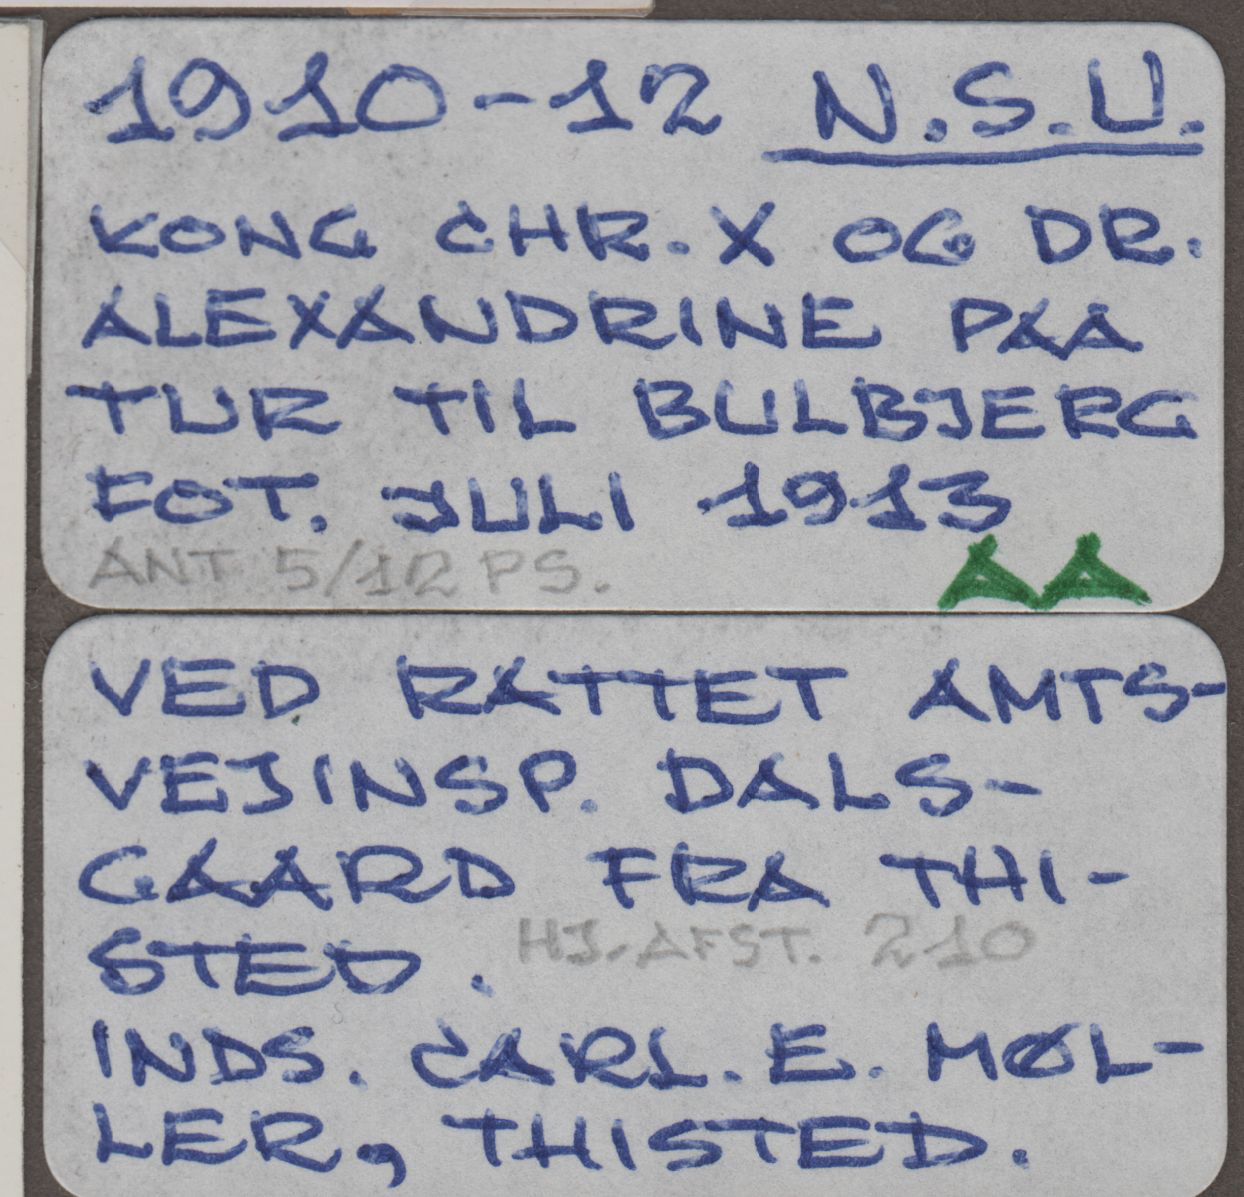 1910-12 N.S.U.
KONG CHR. X OG DR.
ALEXANDRINE PAA
TUR TIL BULBJERG
FOT. JULI 1913
ANT 5/12 PS.
AA
VED RATTET AMTS-
VEJINSP. DALS-
GAARD FRA THI-
STED.
HJ.AFST. 210
INDS. CARL. E. MØL-
LER, THISTED.